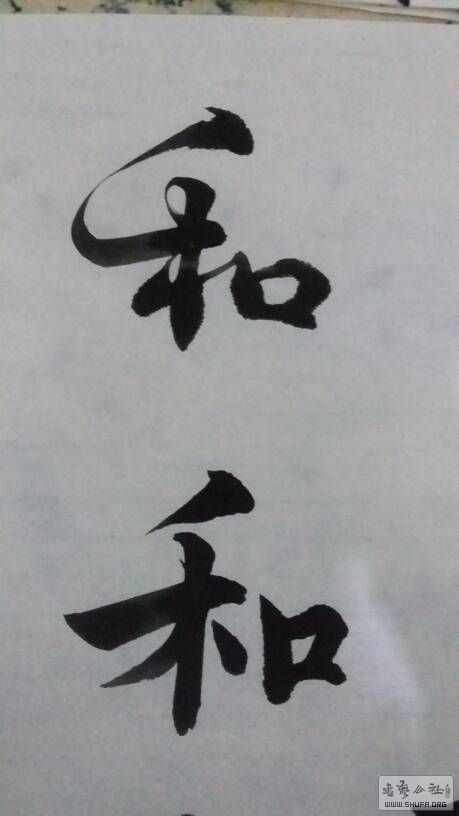 和
和
书艺公社
WWW.SHUFA.ORG